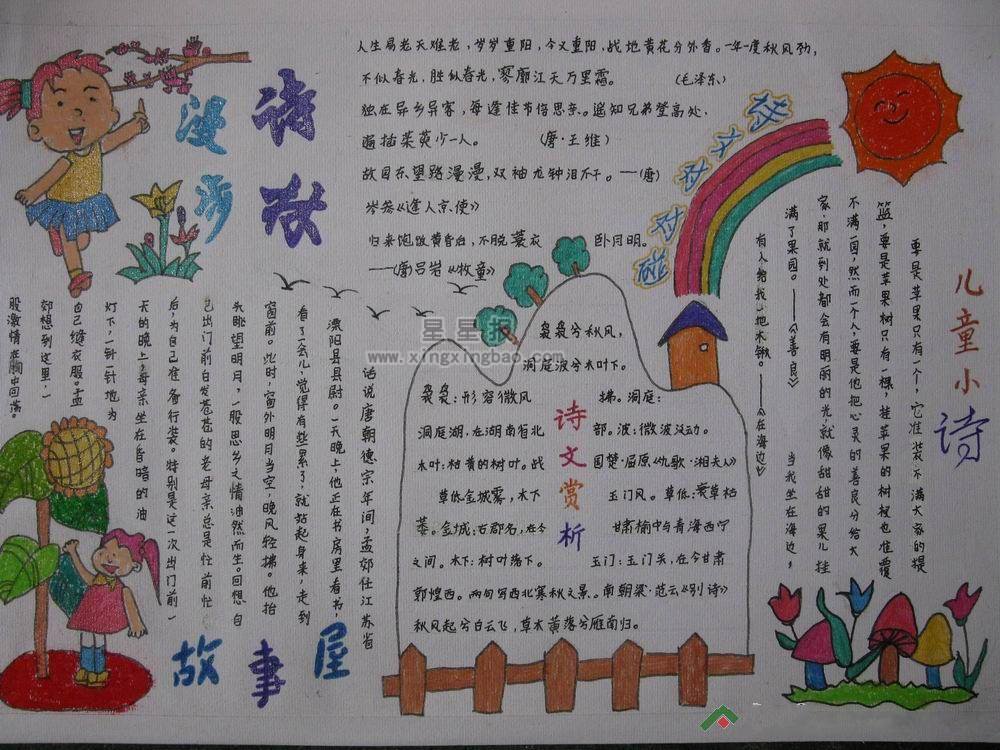 漫步
诗歌
人生易老天难老，岁岁重阳，今又重阳，战地黄花分外香。一年一度秋风劲，
不似春光，胜似春光，寥廓江天万里霜。 （毛泽东）
独在异乡异客，每逢佳节倍思亲。遥知兄弟登高处，
遍插茱萸少一人。 （唐·王维）
故园东望路漫漫，双袖龙钟泪不干。——（唐）
岑参《逢入京使》
归来饱饭黄昏后，不脱蓑衣 卧月明。
——（唐）吕岩《牧童》
对对碰
儿童小诗
要是苹果只有一个，它准装不满大家的提
篮，要是苹果树只有一棵，挂苹果的树杈也准覆
不满一园，然而一个人，要是他把心灵的善良分给大
家，那就到处都会有明丽的光，就像甜甜的果儿挂
满了果园。——《善良》
当我坐在海边，
有人给我一把木锹。——《在海边》
诗文赏析
袅袅兮秋风，
洞庭波兮木叶下。
袅袅：形容微风 拂。洞庭：
洞庭湖，在湖南省北 部。波：微波泛动。
木叶：枯黄的树叶。战 国楚·屈原《九歌·湘夫人》
草低金城雾，木下 玉门风。草低：衰草枯
萎。金城：古郡名，在今 甘肃榆中与青海西宁
之间。木下：树叶落下。 玉门：玉门关，在今甘肃
敦煌西。两句写西北寒秋之景。南朝梁·范云《别诗》
秋风起兮白云飞，草木黄落兮雁南归。
故事屋
话说唐朝德宗年间，孟郊任江苏省
溧阳县县尉。一天晚上，他正在书房里看书，
看了一会儿，觉得有些累了，就站起身来，走到
窗前。此时，窗外明月当空，晚风轻拂。他抬
头眺望明月，一股思乡之情油然而生。回想自
己出门前白发苍苍的老母亲总是忙前忙
后，为自己准备行装。特别是这一次出门前一
天的晚上，母亲坐在昏暗的油
灯下，一针一针地为
自己缝衣服。孟
郊想到这里，一
股激情在胸中回荡。
星星报
www.xingxingbao.com